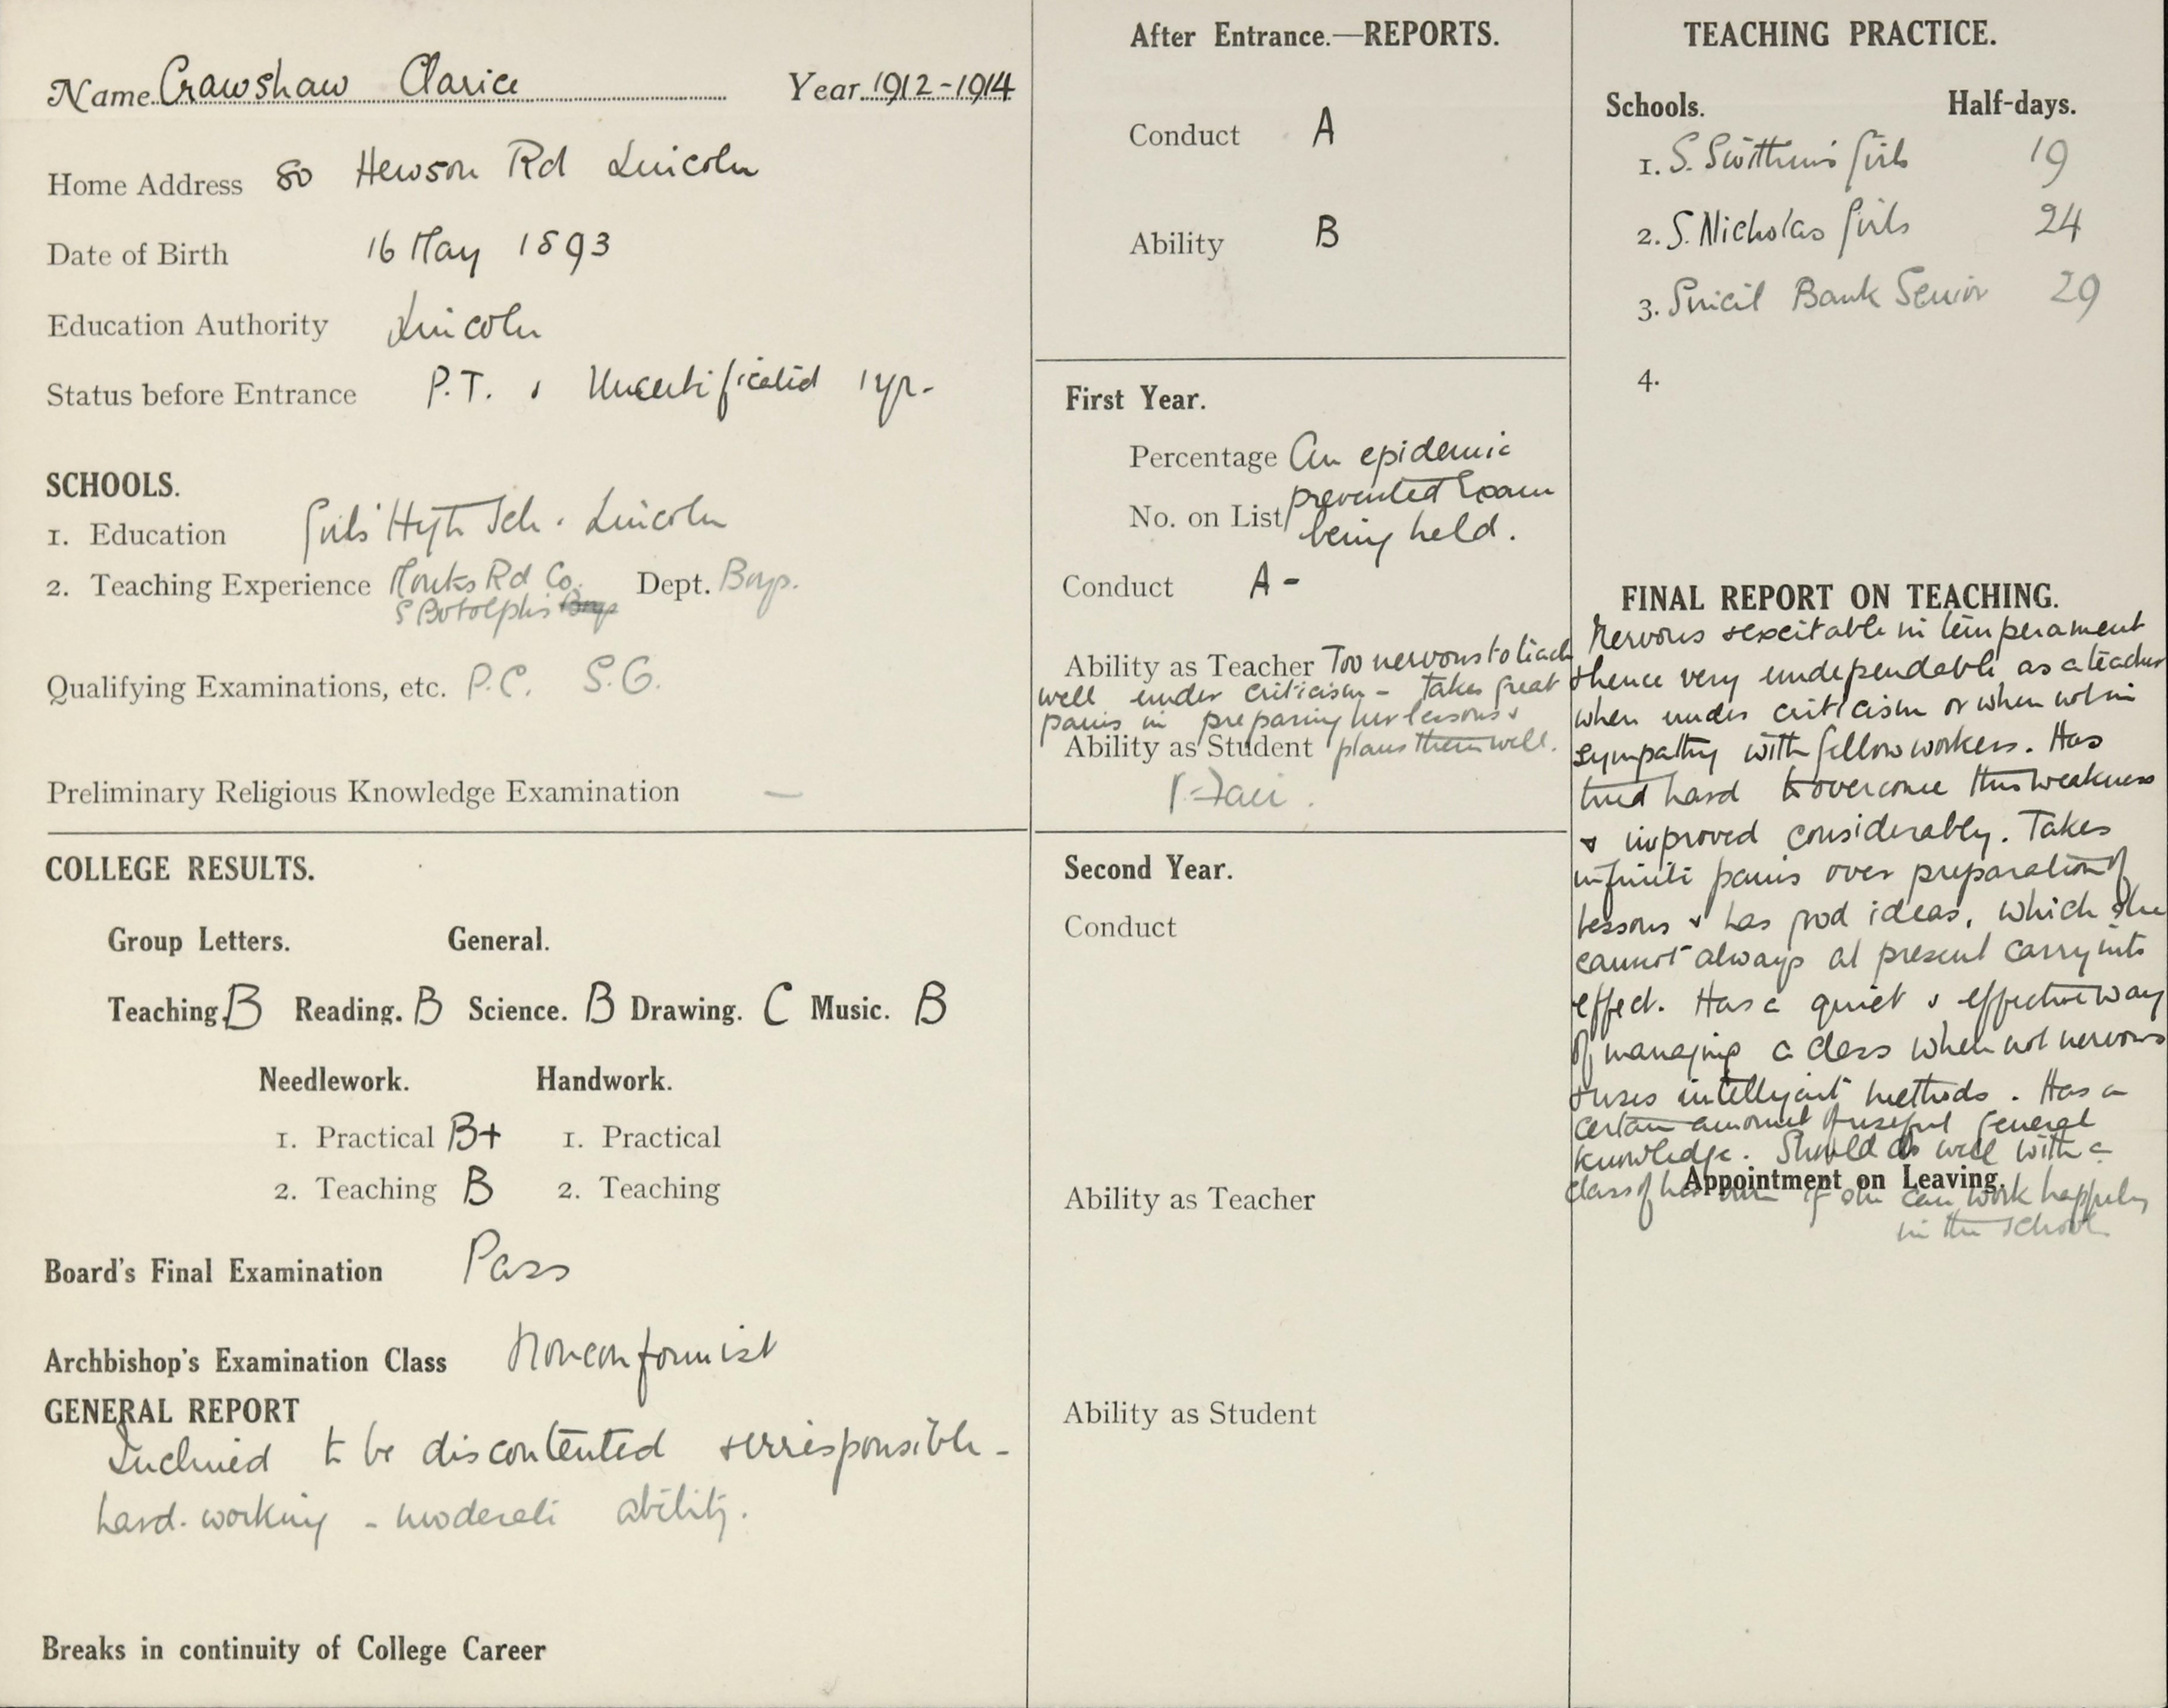 Name Crawshaw Clarice Year 1912-1914
Home Address 80 Hewson Rd Lincoln
Date of Birth 16 May 1893
Education Authority Lincoln
Status before Entrance P.T. & Uncertificated 1 yr.
SCHOOLS.
1. Education Girls' High Sch. Lincoln
2. Teaching Experience Monks Rd Co. Dept. Boys.
S Botolphs Boys
Qualifying Examinations, etc. P.C. S.G.
Preliminary Religious Knowledge Examination —
COLLEGE RESULTS.
Group Letters. General.
Teaching. B Reading. B Science. B Drawing. C Music. B
Needlework. Handwork.
1. Practical B+ 1. Practical
2. Teaching B 2. Teaching
Board's Final Examination Pass
Archbishop's Examination Class Nonconformist
GENERAL REPORT
Inclined to be discontented & irresponsible -
hard-working - moderate ability.
Breaks in continuity of College Career
After Entrance.—REPORTS.
Conduct A
Ability B
First Year.
Percentage An epidemic
prevented Exam
No. on List being held.
Conduct A-
Ability as Teacher Too nervous to teach
well under criticism - Takes great
pains in preparing her lessons &
Ability as Student plans them well.
Fair.
Second Year.
Conduct
Ability as Teacher
Ability as Student
TEACHING PRACTICE.
Schools. Half-days.
1. S. Swithin's Girls 19
2. S. Nicholas Girls 24
3. Sincil Bank Senior 29
4.
FINAL REPORT ON TEACHING.
Nervous & excitable in temperament
& hence very undependable as a teacher
when under criticism or when not in
sympathy with fellow workers. Has
tried hard to overcome this weakness
& improved considerably. Takes
infinite pains over preparation of
lessons & has good ideas, which she
cannot always at present carry into
effect. Has a quiet & effective way
of managing a class when not nervous
& uses intelligent methods. Has a
certain amount of useful general
knowledge. Should do well with a
Appointment on Leaving.
class of her own if she can work happily
in the school